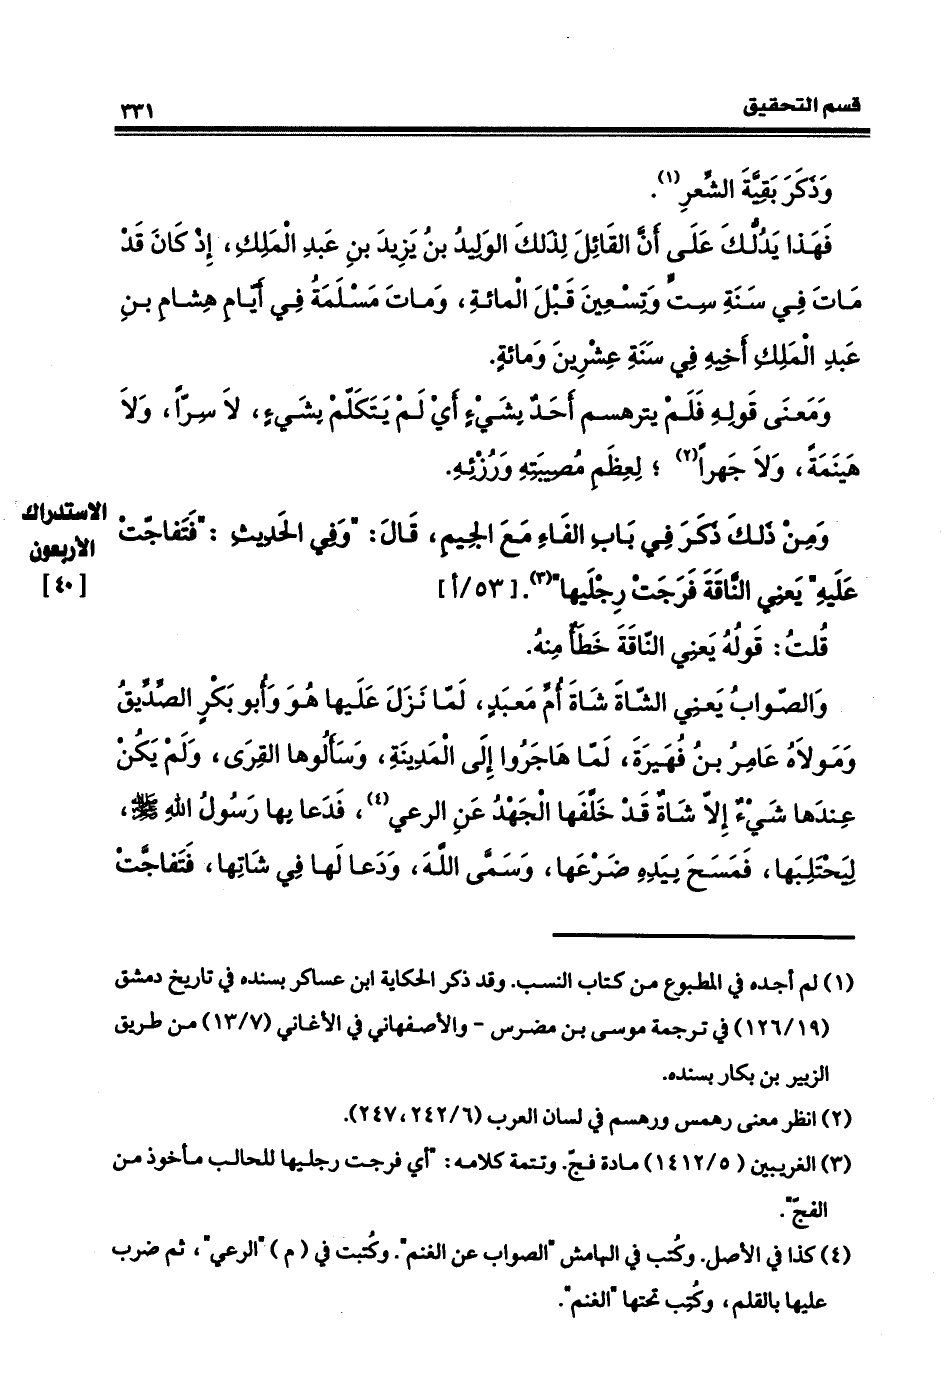 قسم التحقيق
٣٣١
وَذَكَرَ بَقِيَّةَ الشِّعرِ(١).
فَهَذا يَدُلُّكَ عَلَى أَنَّ القَائِلَ لِذَلكَ الوَلِيدُ بنُ يَزِيدَ بنِ عَبدِ الْمَلِكِ، إِذْ كَانَ قَدْ
مَاتَ فِي سَنَةِ سِتٍّ وَتِسْعِينَ قَبْلَ الْمائةِ، وَماتَ مَسْلَمَةُ فِي أَيّامِ هِشامِ بنِ
عَبدِ الْمَلِكِ أَخِيهِ فِي سَنَةِ عِشْرِينَ وَمائةٍ.
وَمَعنَى قَولِهِ فَلَمْ يترهسم أَحَدٌ بِشَيْءٍ أَيْ لَمْ يَتَكَلَّمْ بِشَيءٍ، لاَ سِرّاً، وَلاَ
هَينَمَةً، وَلاَ جَهراً(٢) ؛ لِعِظَمِ مُصِيبَتِهِ وَرُزْئِهِ.
وَمِنْ ذَلكَ ذَكَرَ فِي بَابِ الفَاءِ مَعَ الجِيمِ، قَالَ: "وَفِي الحَدِيثِ : "فَتَفاجّتْ
عَلَيهِ" يَعنِي النَّاقَةَ فَرَجَتْ رِجْلَيها"(٣). [٥٣/أ]
الاستدراك
الأربعون
[٤٠]
قُلتُ: قَولُهُ يَعنِي النّاقَةَ خَطَأٌ مِنهُ.
وَالصّوابُ يَعنِي الشّاةَ شَاةَ أُمِّ مَعبَدٍ، لَمّا نَزَلَ عَلَيها هُوَ وَأَبو بَكْرٍ الصِّدِّيقُ
وَمَولاَهُ عَامِرُ بنُ فُهَيرَةَ، لَمّا هَاجَرُوا إِلَى الْمَدِينَةِ، وَسَأَلُوها القِرَى، وَلَمْ يَكُنْ
عِندَها شَيْءٌ إِلاّ شَاةٌ قَدْ خَلَّفَها الْجَهْدُ عَنِ الرعي(٤)، فَدَعا بِها رَسُولُ اللهِ ﷺ،
لِيَحْتَلِبَها، فَمَسَحَ بِيَدِهِ ضَرْعَها، وَسَمَّى اللَّهَ، وَدَعا لَها فِي شَاتِها، فَتَفاجَّتْ
(١) لم أجده في المطبوع من كتاب النسب. وقد ذكر الحكاية ابن عساكر بسنده في تاريخ دمشق
(١٢٦/١٩) في ترجمة موسى بن مضرس - والأصفهاني في الأغاني (١٣/٧) من طريق
الزبير بن بكار بسنده.
(٢) انظر معنى رهمس ورهسم في لسان العرب (٢٤٢/٦، ٢٤٧).
(٣) الغريبين (١٤١٢/٥) مادة فجّ. وتتمة كلامه: "أي فرجت رجليها للحالب مأخوذ من
الفجّ".
(٤) كذا في الأصل. وكُتب في الهامش "الصواب عن الغنم". وكُتبت في (م) "الرعي"، ثم ضرب
عليها بالقلم، وكُتِب تحتها "الغنم".